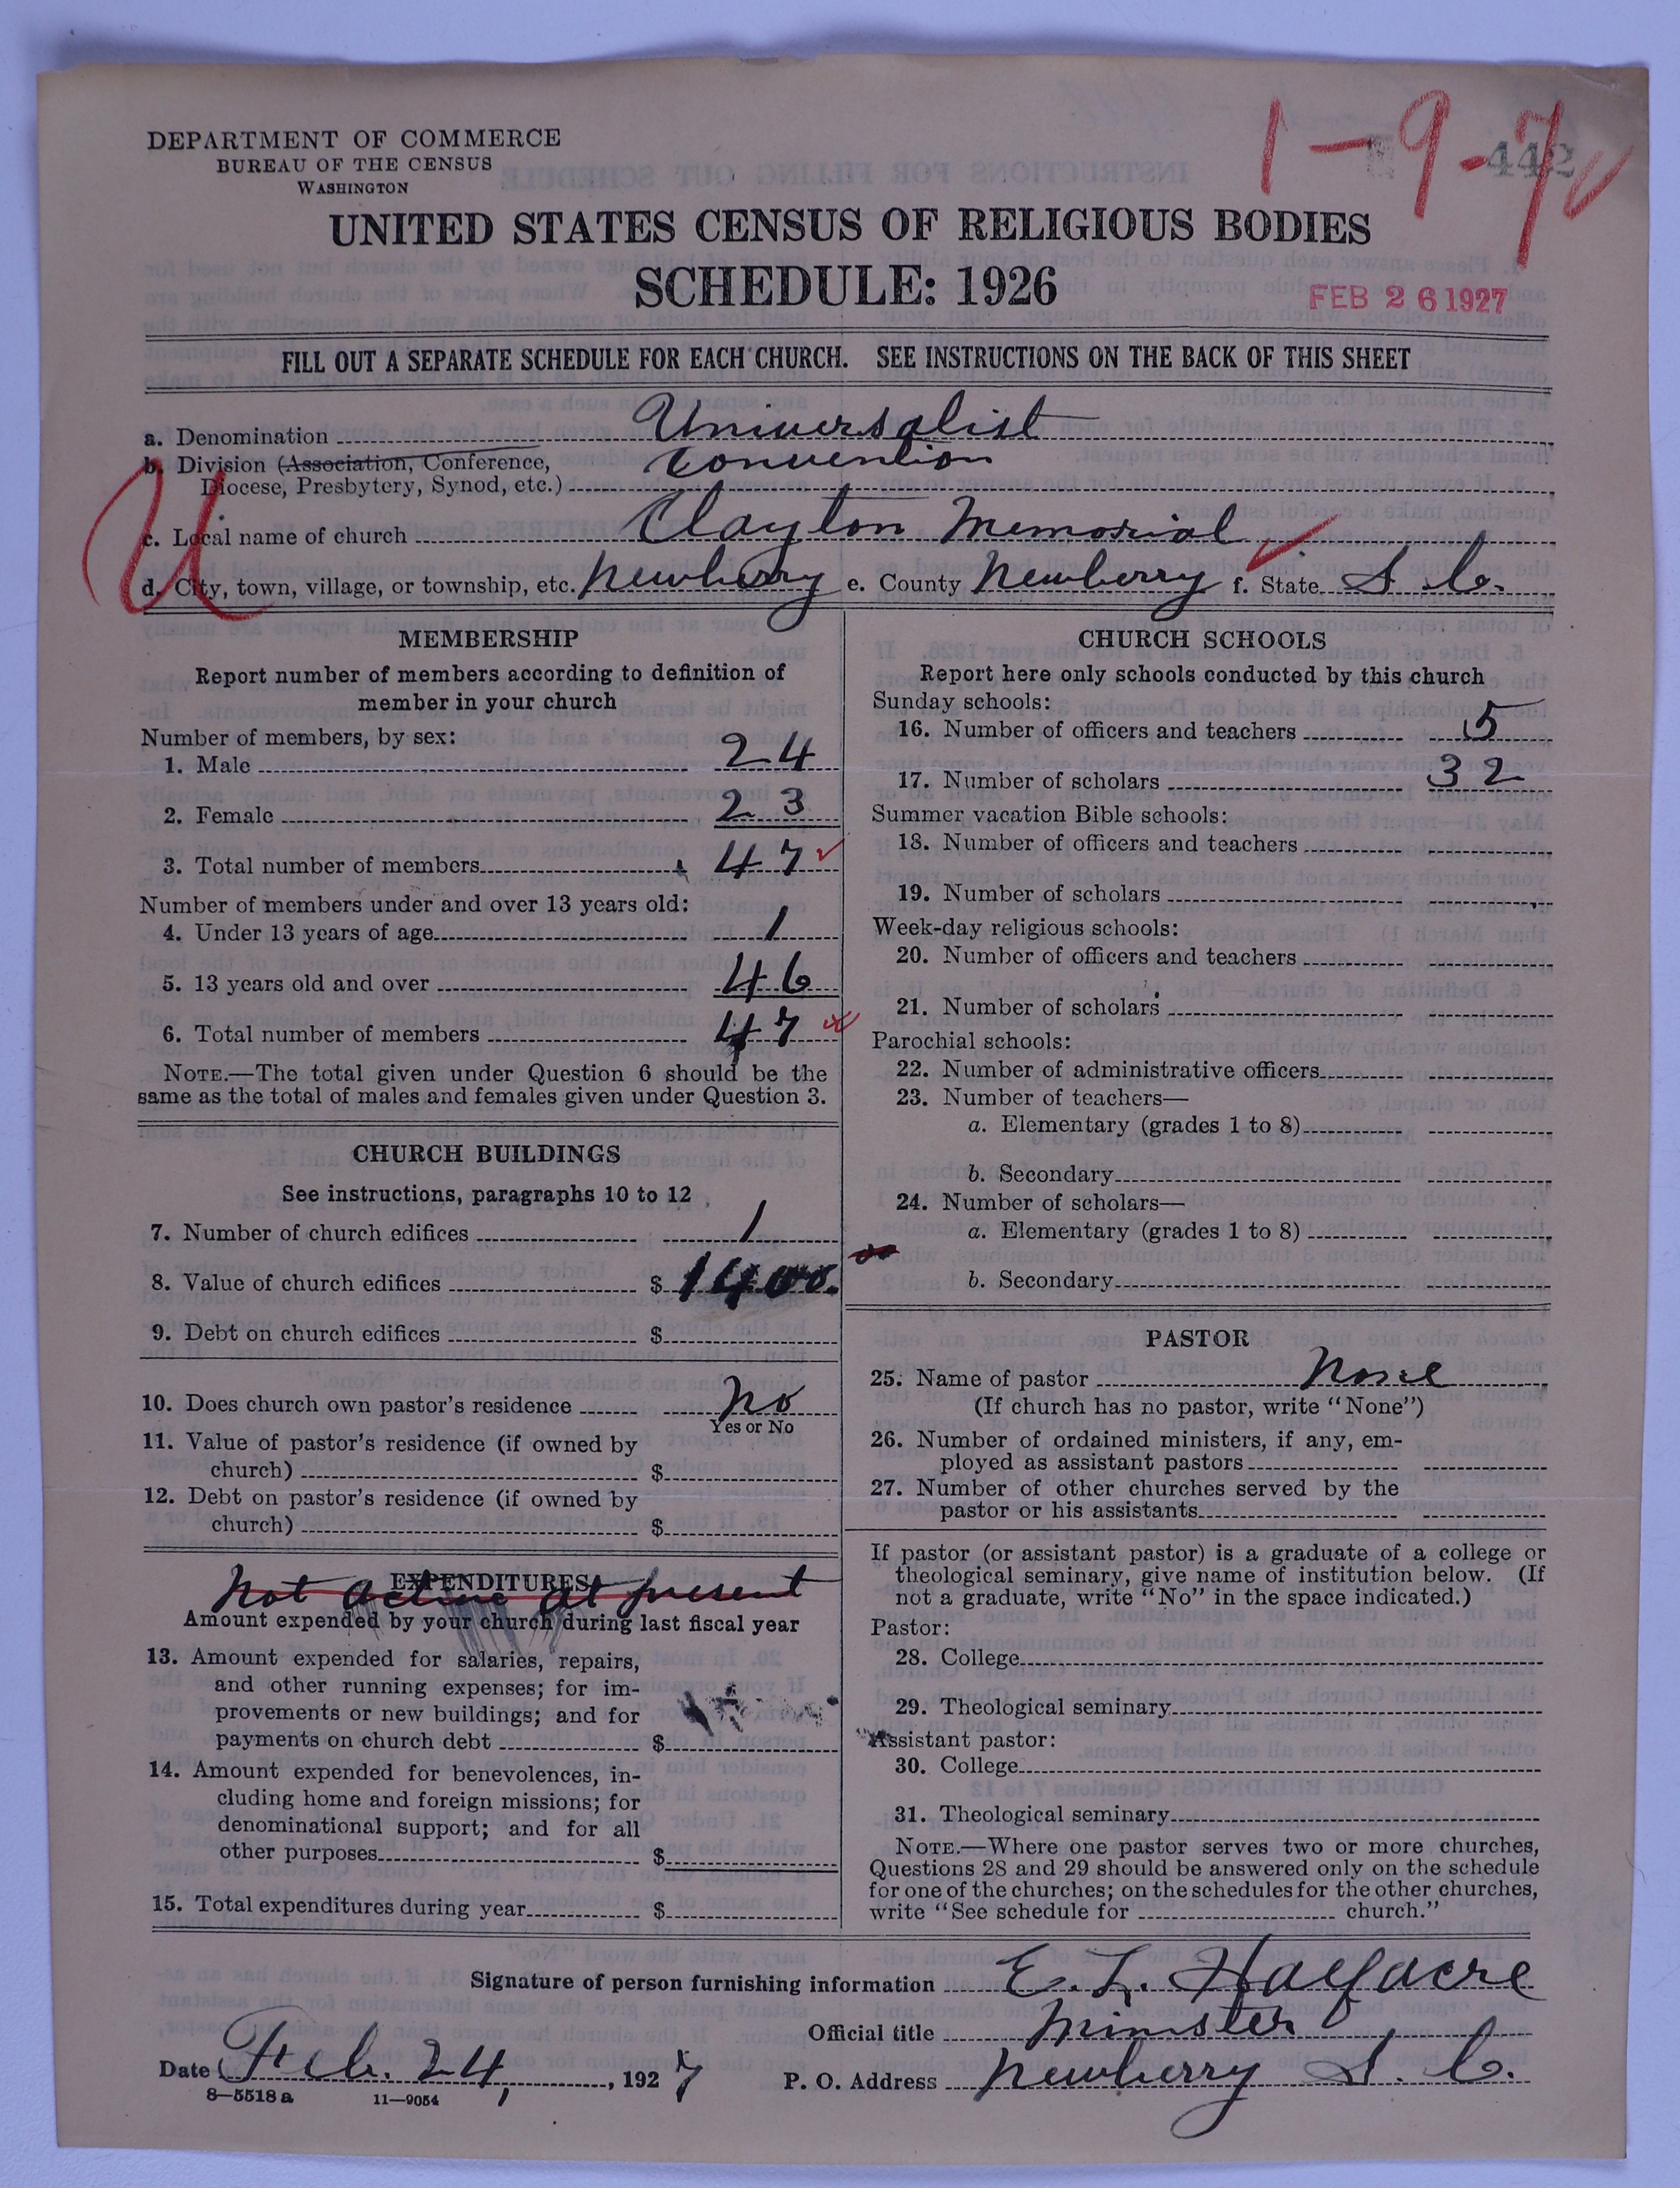 DEPARTMENT OF COMMERCE
BUREAU OF THE CENSUS
WASHINGTON
1-9-7
442
UNITED STATES CENSUS OF RELIGIOUS BODIES
SCHEDULE: 1926
FEB 26 1927
FILL OUT A SEPARATE SCHEDULE FOR EACH CHURCH. SEE INSTRUCTIONS ON THE BACK OF THIS SHEET
a. Denomination Universalist
b. Division (Association, Conference, Convention
Diocese, Presbytery, Synod, etc.)
U
c. Local name of church Clayton Memorial
d. City, town, village, or township, etc. Newberry e. County Newberry f. State S. C.
MEMBERSHIP
Report number of members according to definition of
member in your church
Number of members, by sex:
1. Male 24
2. Female 23
3. Total number of members 47
Number of members under and over 13 years old:
4. Under 13 years of age 1
5. 13 years old and over 46
6. Total number of members 47
NOTE.—The total given under Question 6 should be the
same as the total of males and females given under Question 3.
CHURCH BUILDINGS
See instructions, paragraphs 10 to 12
7. Number of church edifices 1
8. Value of church edifices $ 1400.
9. Debt on church edifices $
10. Does church own pastor's residence No
Yes or No
11. Value of pastor's residence (if owned by
church) $
12. Debt on pastor's residence (if owned by
church) $
EXPENDITURES
Not active at present
Amount expended by your church during last fiscal year
13. Amount expended for salaries, repairs,
and other running expenses; for im-
provements or new buildings; and for
payments on church debt $
14. Amount expended for benevolences, in-
cluding home and foreign missions; for
denominational support; and for all
other purposes $
15. Total expenditures during year $
CHURCH SCHOOLS
Report here only schools conducted by this church
Sunday schools:
16. Number of officers and teachers 5
17. Number of scholars 32
Summer vacation Bible schools:
18. Number of officers and teachers
19. Number of scholars
Week-day religious schools:
20. Number of officers and teachers
21. Number of scholars
Parochial schools:
22. Number of administrative officers
23. Number of teachers—
a. Elementary (grades 1 to 8)
b. Secondary
24. Number of scholars—
a. Elementary (grades 1 to 8)
b. Secondary
PASTOR
25. Name of pastor None
(If church has no pastor, write "None")
26. Number of ordained ministers, if any, em-
ployed as assistant pastors
27. Number of other churches served by the
pastor or his assistants
If pastor (or assistant pastor) is a graduate of a college or
theological seminary, give name of institution below. (If
not a graduate, write "No" in the space indicated.)
Pastor:
28. College
29. Theological seminary
Assistant pastor:
30. College
31. Theological seminary
NOTE.—Where one pastor serves two or more churches,
Questions 28 and 29 should be answered only on the schedule
for one of the churches; on the schedules for the other churches,
write "See schedule for church."
Signature of person furnishing information E. L. Halfacre
Official title Minister
Date Feb. 24, 1927 P. O. Address Newberry S. C.
8—5518 a 11—9054